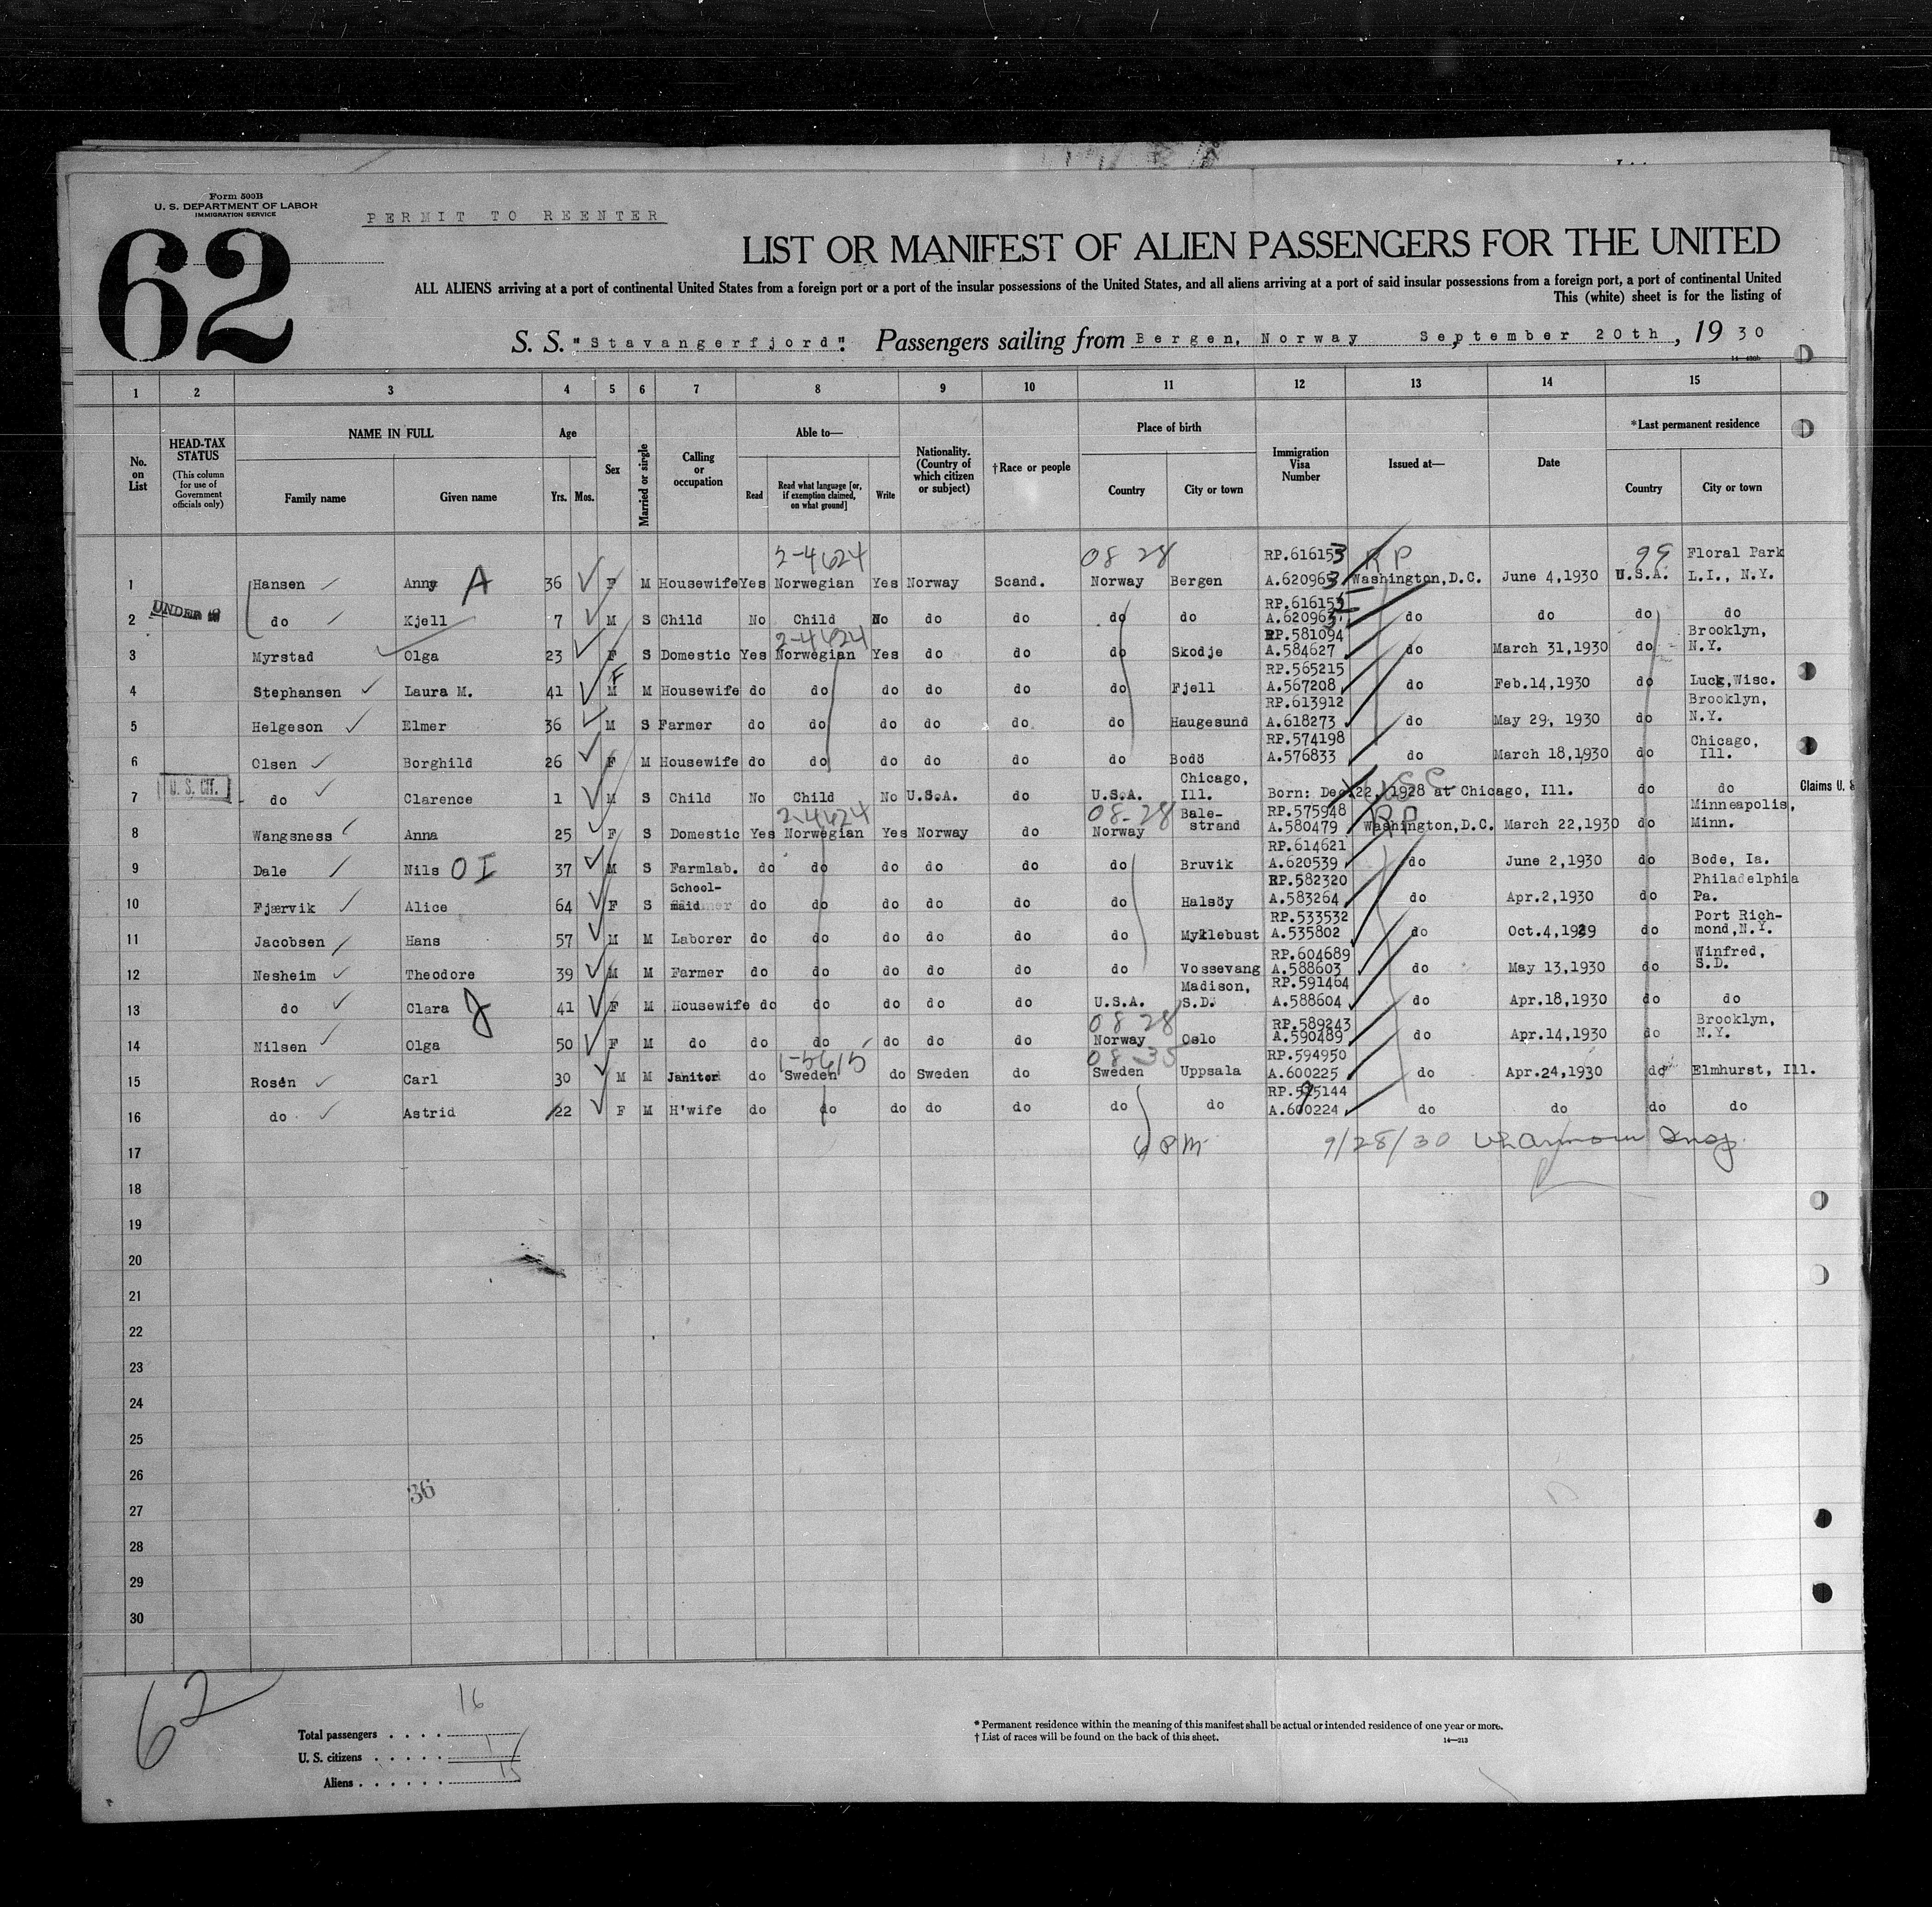 Form 500B
U. S. DEPARTMENT OF LABOR
IMMIGRATION SERVICE
PERMIT TO REENTER
62
LIST OR MANIFEST OF ALIEN PASSENGERS FOR THE UNITED
ALL ALIENS arriving at a port of continental United States from a foreign port or a port of the insular possessions of the United States, and all aliens arriving at a port of said insular possessions from a foreign port, a port of continental United
This (white) sheet is for the listing of
S. S. "Stavangerfjord". Passengers sailing from Bergen, Norway September 20th, 1930
1 2 3 4 5 6 7 8 9 10 11 12 13 14 15
No. on List
HEAD-TAX STATUS (This column for use of Government officials only)
NAME IN FULL Family name Given name
Age Yrs. Mos.
Sex
Married or single
Calling or occupation
Able to— Read Read what language [or, if exemption claimed, on what ground] Write
Nationality. (Country of which citizen or subject)
†Race or people
Place of birth Country City or town
Immigration Visa Number
Issued at—
Date
*Last permanent residence Country City or town
2-4624 08 28 RP.616153 RP 99 Floral Park
1 Hansen Anny A 36 F M Housewife Yes Norwegian Yes Norway Scand. Norway Bergen A.620963 Washington,D.C. June 4,1930 U.S.A. L.I., N.Y.
RP.616153
2 UNDER do Kjell 7 M S Child No Child No do do do do A.620963 do do do do
2-4624 RP.581094 Brooklyn,
3 Myrstad Olga 23 F S Domestic Yes Norwegian Yes do do do Skodje A.584627 do March 31,1930 do N.Y.
F RP.565215
4 Stephansen Laura M. 41 M M Housewife do do do do do do Fjell A.567208 do Feb.14,1930 do Luck,Wisc.
RP.613912 Brooklyn,
5 Helgeson Elmer 36 M S Farmer do do do do do do Haugesund A.618273 do May 29, 1930 do N.Y.
RP.574198 Chicago,
6 Olsen Borghild 26 F M Housewife do do do do do do Bodö A.576833 do March 18,1930 do Ill.
Chicago, USC
7 U.S. CIT. do Clarence 1 M S Child No Child No U.S.A. do U.S.A. Ill. Born: Dec.22, 1928 at Chicago, Ill. do do Claims U. S
2-4624 08-28 Bale- RP.575948 RP Minneapolis,
8 Wangsness Anna 25 F S Domestic Yes Norwegian Yes Norway do Norway strand A.580479 Washington,D.C. March 22,1930 do Minn.
RP.614621
9 Dale Nils O I 37 M S Farmlab. do do do do do do Bruvik A.620539 do June 2,1930 do Bode, Ia.
School- RP.582320 Philadelphia
10 Fjærvik Alice 64 F S maid do do do do do do Halsöy A.583264 do Apr.2,1930 do Pa.
RP.533532 Port Rich-
11 Jacobsen Hans 57 M M Laborer do do do do do do Myklebust A.535802 do Oct.4,1929 do mond,N.Y.
RP.604689 Winfred,
12 Nesheim Theodore 39 M M Farmer do do do do do do Vossevang A.588603 do May 13,1930 do S.D.
Madison, RP.591464
13 do Clara J 41 F M Housewife do do do do do U.S.A. S.D. A.588604 do Apr.18,1930 do do
08 28 RP.589243 Brooklyn,
14 Nilsen Olga 50 F M do do do do do do Norway Oslo A.590489 do Apr.14,1930 do N.Y.
1-5615 08 35 RP.594950
15 Rosén Carl 30 M M Janitor do Sweden do Sweden do Sweden Uppsala A.600225 do Apr.24,1930 do Elmhurst, Ill.
16 do Astrid 22 F M H'wife do do do do do do do A.600224 do do do do
17 6 PM 9/28/30 Insp.
18
19
20
21
22
23
24
25
26
36
27
28
29
30
62
Total passengers . . . . 16
U. S. citizens . . . . . 1
Aliens . . . . . . 15
* Permanent residence within the meaning of this manifest shall be actual or intended residence of one year or more.
† List of races will be found on the back of this sheet.
14—213